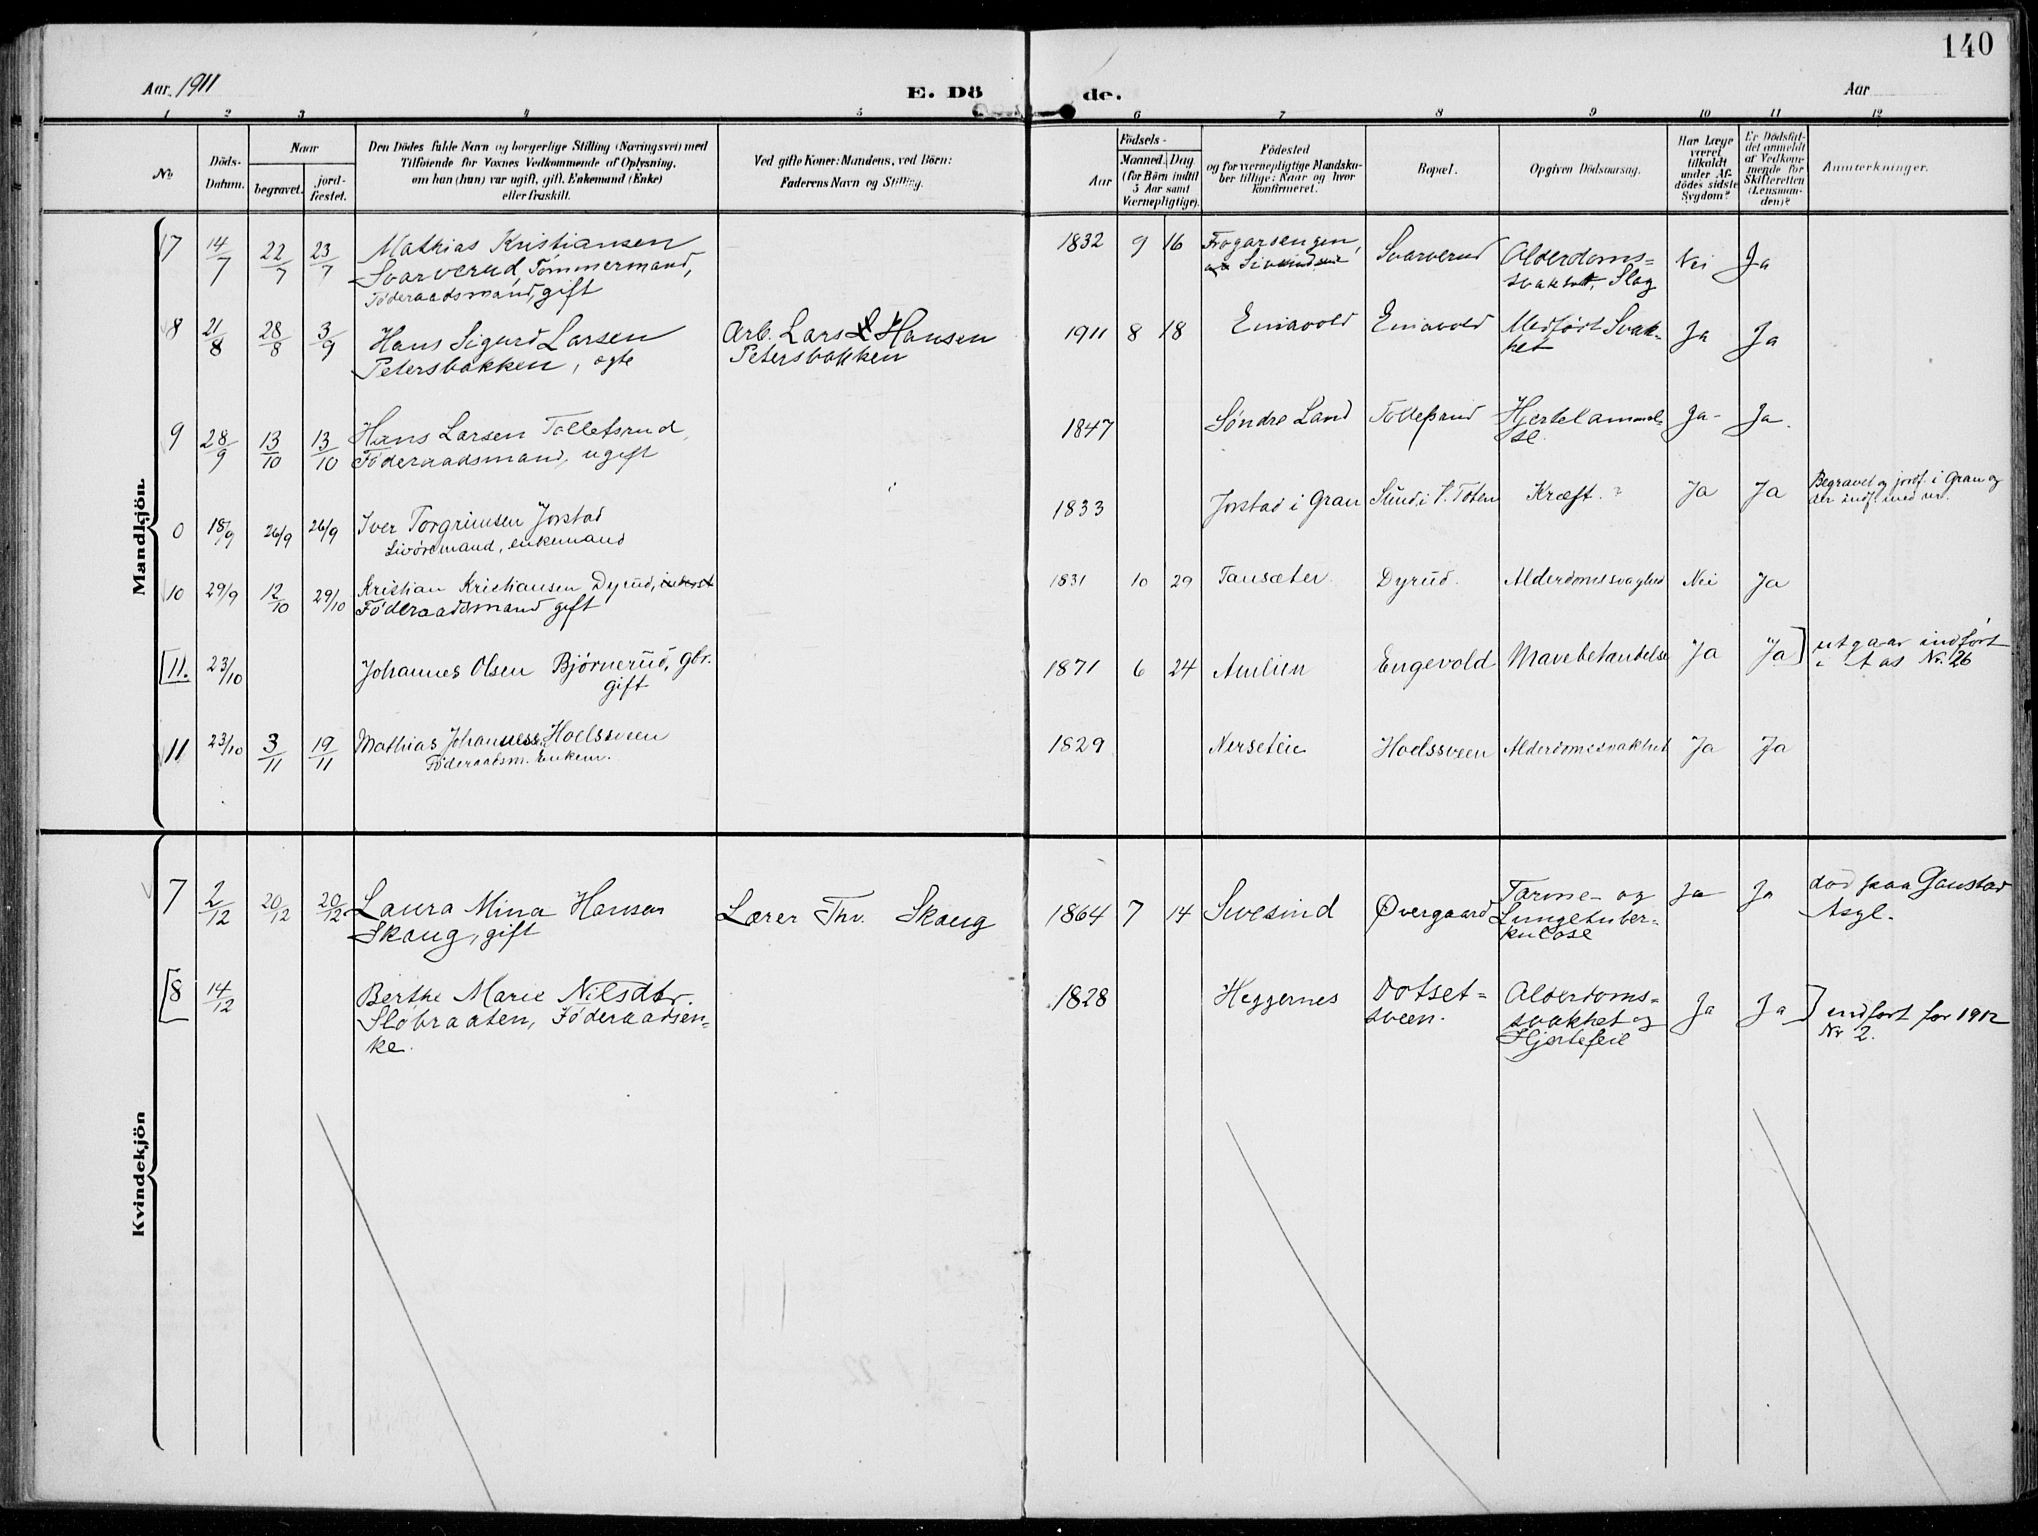 140
Aar. 1911
E. Dö
de.
Aar
1 2 3 4 5 6 7 8 9 10 11 12
No
Döds-
Datum.
Naar
begravet.
jord-
fæstet.
Den Dödes fulde Navn og borgerlige Stilling (Næringsvei) med
Tilföiende for Voxnes Vedkommende af Oplysning,
om han (hun) var ugift, gift, Enkemand (Enke)
eller fraskilt.
Ved gifte Koner: Mandens, ved Börn:
Faderens Navn og Stilling.
Födsels-
Aar
Maaned. Dag
(for Börn indtil
5 Aar samt
Værnepligtige).
Födested
og for værnepligtige Mandska-
ber tillige: Naar og hvor
konfirmeret.
Bopæl.
Opgiven Dödsaarsag.
Har Læge
været
tilkaldt
under Af-
dödes sidste
Sygdom?
Er Dödsfal-
det anmeldt
af Vedkom-
mende for
Skifteretten
(Lensman-
den)?
Anmærkninger.
Mandkjön.
7 14/7 22/7 23/7 Mathias Kristiansen
Svarverud, Tømmermand,
Føderaadsmand, gift
1832 9 16 Svarverud Alderdoms=
Slag Nei Ja
8 21/8 28/8 3/9 Hans Sigurd Larsen
Petersbakken, ægte
Arb. Lars L Hansen
Petersbakken
1911 8 18 Eniavold Eniavold Medført Svak-
het Ja Ja
9 28/9 13/10 13/10 Hans Larsen Tollefsrud,
Føderaadsmand, ugift
1847 Søndre Land Tollefsrud Hjertelammel-
se. Ja- Ja.
0 18/9 26/9 26/9 Iver Torgrimsen Jorstad
enkemand
1833 Jorstad i Gran Sund i V. Toten Kræft. Ja Ja
Begravet og jordf. i Gran og
der indf. med nr.
10 29/9 12/10 29/10 Kristian Kristiansen Dyrud,
Føderaadsmand gift
1831 10 29 Tansæter Dyrud. Alderdomssvaghed Nei Ja
[11. 23/10 Johannes Olsen Bjørnerud, gbr.
gift
1871 6 24 Amlien Engevold Mavebetændelse Ja Ja]
utgaar indført
Nr. 26
11 23/10 3/11 19/11 Mathias Johannessen Hoelssveen
Føderaadsm. Enkem.
1829 Nerseteie Hoelssveen Alderdomssvakhet Ja Ja
Kvindekjön
7 2/12 20/12 20/12 Laura Mina Hansen
Skaug, gift
Lærer Thv. Skaug
1864 7 14 Sivesind Øvergaard Tarme- og
Lungetuber-
kulose Ja Ja
død paa Gaustad
Asyl.
[8 14/12 Berthe Marie Nilsdtr.
Slobraaten, Føderaadsen-
ke.
1828 Heggernes Dotset=
sveen. Alderdoms=
svakhet og
Hjertefeil Ja Ja]
indført for 1912
Nr 2.